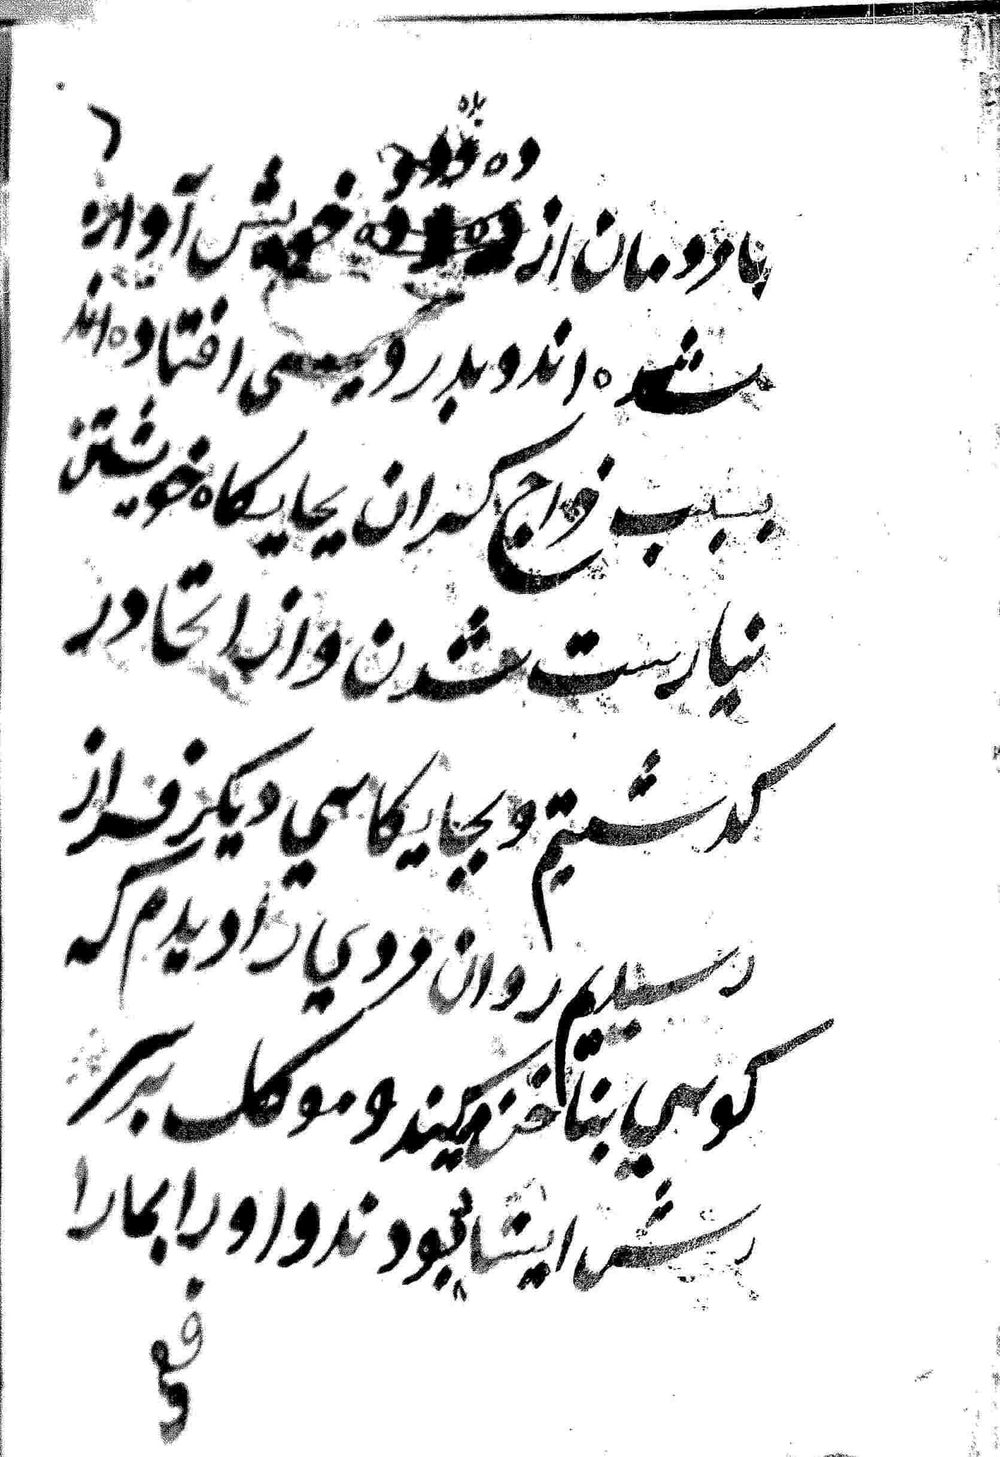 ۶
ده
با مردمان از خویش آواره
شده اند و بدرویشی افتاده اند
بسبب خراج کران بجایکاه خویشتن
نیارست شدن و از انجا در
کدشتیم و بجایکاهی دیکر فراز
رسیدیم روان مردی را دیدم که
کوهی بناخن میکند و موکل بر سر
رش ایشا بودند و او را بمارا